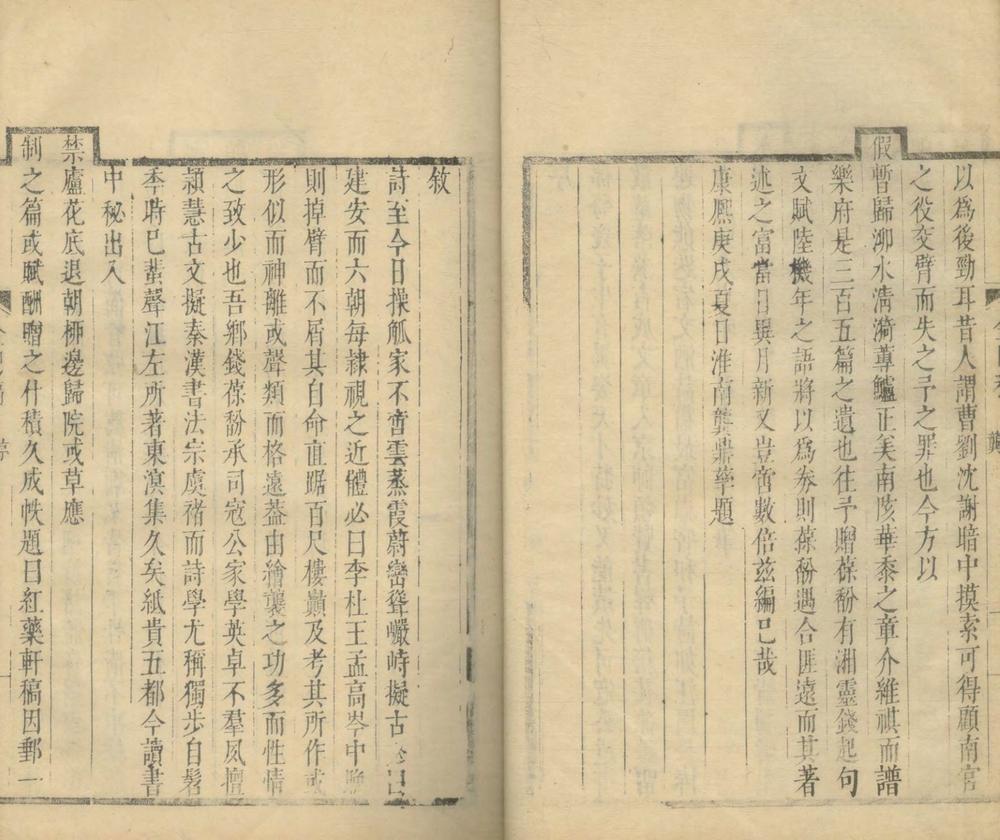 以爲後勁耳昔人謂曹劉沈謝暗中摸索可得顧南宮
之役交臂而失之予之罪也今方以
假暫歸泖水淸漪蓴鱸正美南陔華黍之章介維祺而譜
樂府是三百五篇之遺也往予贈葆馚有湘靈錢起句
文賦陸機年之語將以爲券則葆馚遇合匪遠而其著
述之富當日異月新又豈啻數倍茲編已哉
康熈庚戌夏日淮南龔鼎孳題
敘
詩至今日操觚家不啻雲蒸霞蔚巒聳巘峙擬古必曰
建安而六朝每隷視之近體必曰李杜王孟高岑中晚
則掉臂而不屑其自命直踞百尺樓巔及考其所作或
形似而神離或聲類而格遠葢由繪襲之功多而性情
之致少也吾鄉錢葆馚承司寇公家學英卓不羣夙擅
頴慧古文擬秦漢書法宗虞褚而詩學尤稱獨步自髫
季時已蜚聲江左所著東溟集久矣紙貴五都今讀書
中秘出入
禁廬花底退朝栁邊歸院或草應
制之篇或賦酬贈之什積久成帙題曰紅藥軒稿因郵一